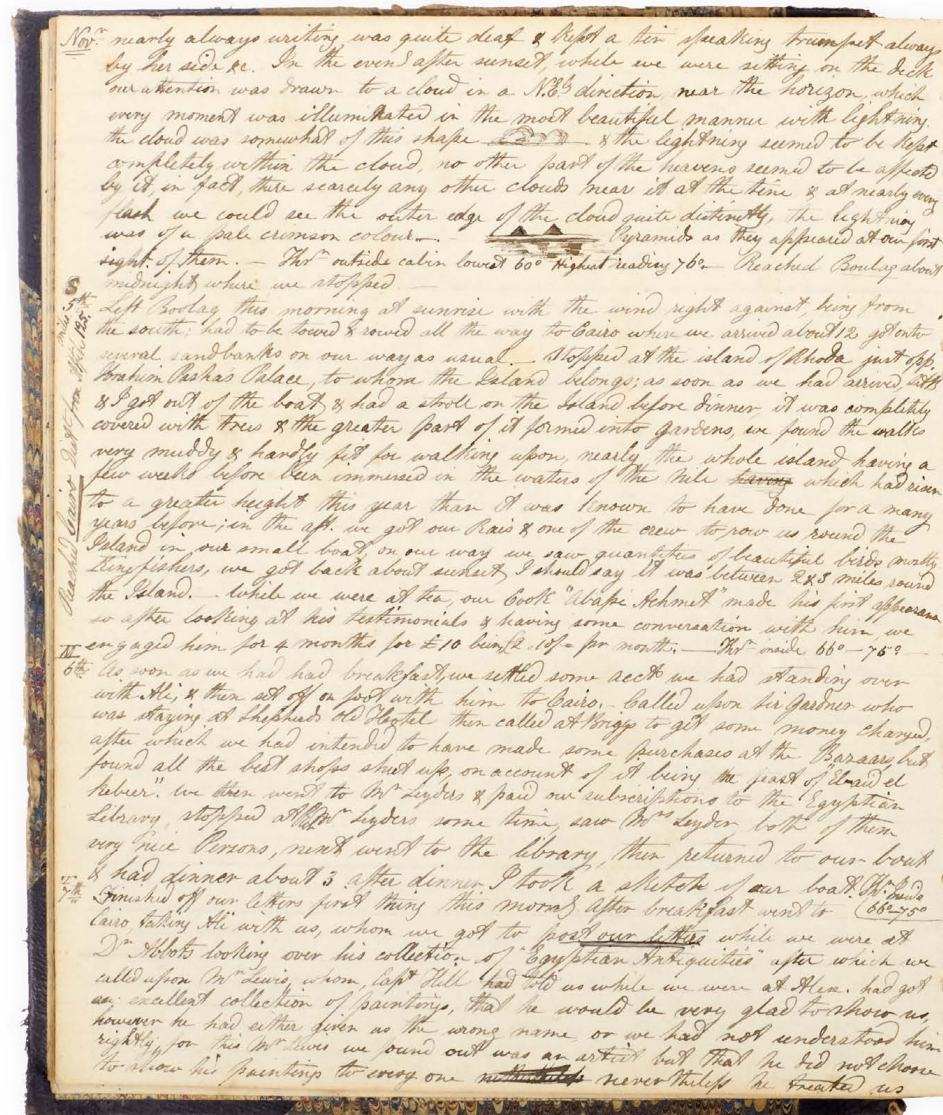 Novr. nearly always writing, was quite deaf & kept a tin speaking trumpet always
by her side &c. In the eveng after sunset, while we were sitting on the deck
our attention was drawn to a cloud in a N.Ely direction, near the horizon, which
every moment was illuminated in the most beautiful manner with lightning.
the cloud was somewhat of this shape & the lightning seemed to be kept
completely within the cloud, no other part of the heavens seemed to be affected
by it, in fact, there scarcely any other clouds near it at the time & at nearly every
flash we could see the outer edge of the cloud quite distinctly, the lightning
was of a pale crimson colour. — Pyramids as they appeared at our first
sight of them. — Thr. outside cabin lowest 60° Highest reading 76° — Reached Boulaq about
midnight where we stopped —
S
5th
Left Boolaq this morning at sunrise with the wind right against, being from
the south; had to be towed & rowed all the way to Cairo where we arrived about 12 got onto
several sandbanks on our way as usual — Stopped at the island of Rhoda just opp.
Ibrahim Pasha's Palace, to whom the Island belongs; as soon as we had arrived,
& I got out of the boat & had a stroll on the Island before dinner, it was completely
covered with trees & the greater part of it formed into gardens, we found the walks
very muddy & hardly fit for walking upon, nearly the whole island having a
few weeks before been immersed in the waters of the Nile having which had risen
to a greater height this year than it was known to have done for a many
years before; in the aft. we got our Rais & one of the crew to row us round the
Island in our small boat, on our way we saw quantities of beautiful birds mostly
Kingfishers, we got back about sunset, I should say it was between 2 & 3 miles round
the Island. — While we were at tea, our Cook "Abassi Achmet" made his first appearance
so after looking at his testimonials & having some conversation with him, we
engaged him for 4 months for £10 being £2.10/- pr month. — Thr inside 66° — 75° —
Reached Cairo Distce from Atfeh 125 miles
M
6th
As soon as we had had breakfast, we settled some acct we had standing over
with Ali; & then set off on foot with him to Cairo. Called upon Sir Gardner who
was staying at Shepherds Old Hotel then called at Briggs to get some money changed,
after which we had intended to have made some purchases at the Bazaars, but
found all the best shops shut up, on account of it being the feast of "El eaid el
Kebeer". We then went to Mr Leyders & paid our subscriptions to the Egyptian
Library, stopped at Mr Leyders some time, saw Mrs Leyder, both of them
very nice Persons, next went to the library, then returned to our boat
& had dinner about 3. after dinner I took a sketch of our boat. Thr. Inside
66°–75°
T
7th
Finished off our letters first thing this morng after breakfast went to
Cairo, taking Ali with us, whom we got to post our letters while we were at
Dr Abbots looking over his collection of "Egyptian Antiquities" after which we
called upon Mr Lewis, whom, Capt Hill had told us while we were at Alex. had got
an excellent collection of paintings, that he would be very glad to show us,
however he had either given us the wrong name, or we had not understood him
rightly, for this Mr Lewis we found out was an artist but that he did not choose
to show his paintings to every one nevertheless he treated us